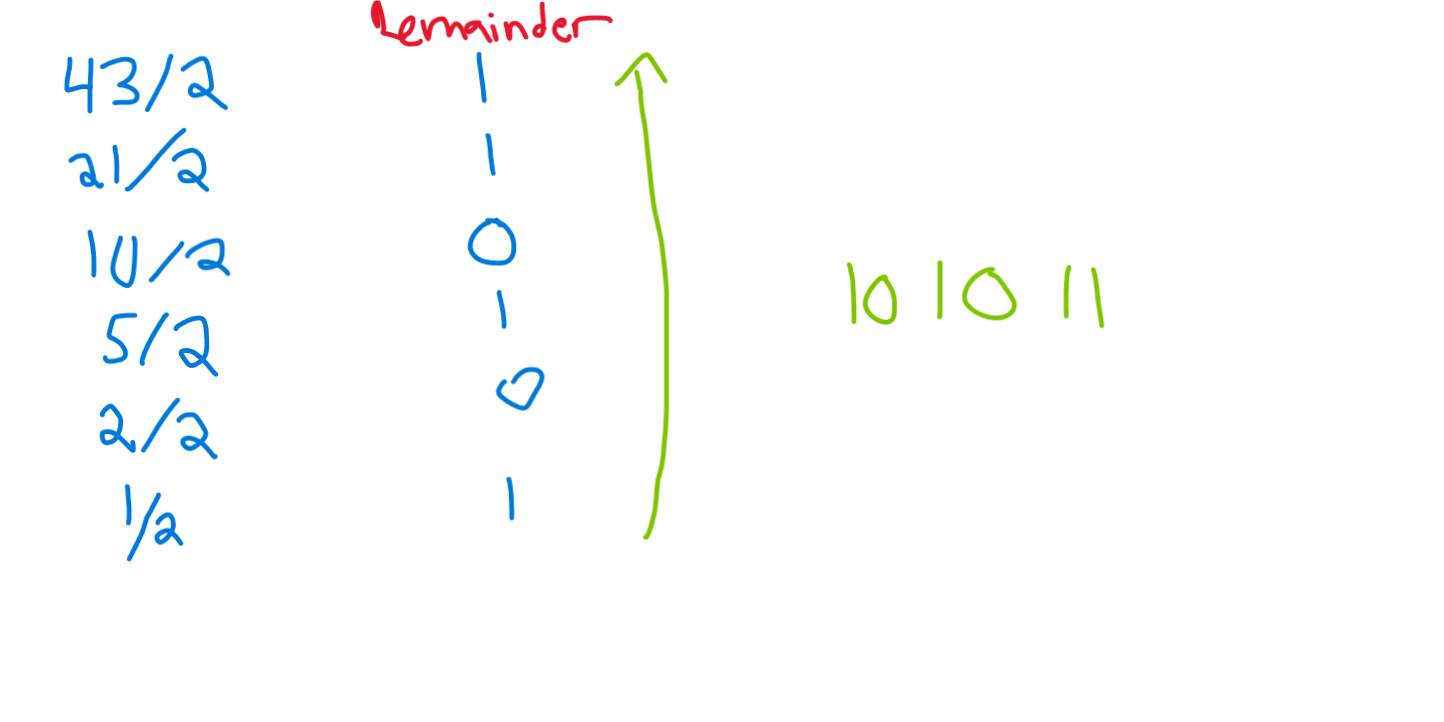 Remainder
43/2 1
21/2 1
10/2 0
5/2 1
2/2 0
1/2 1
10 10 11